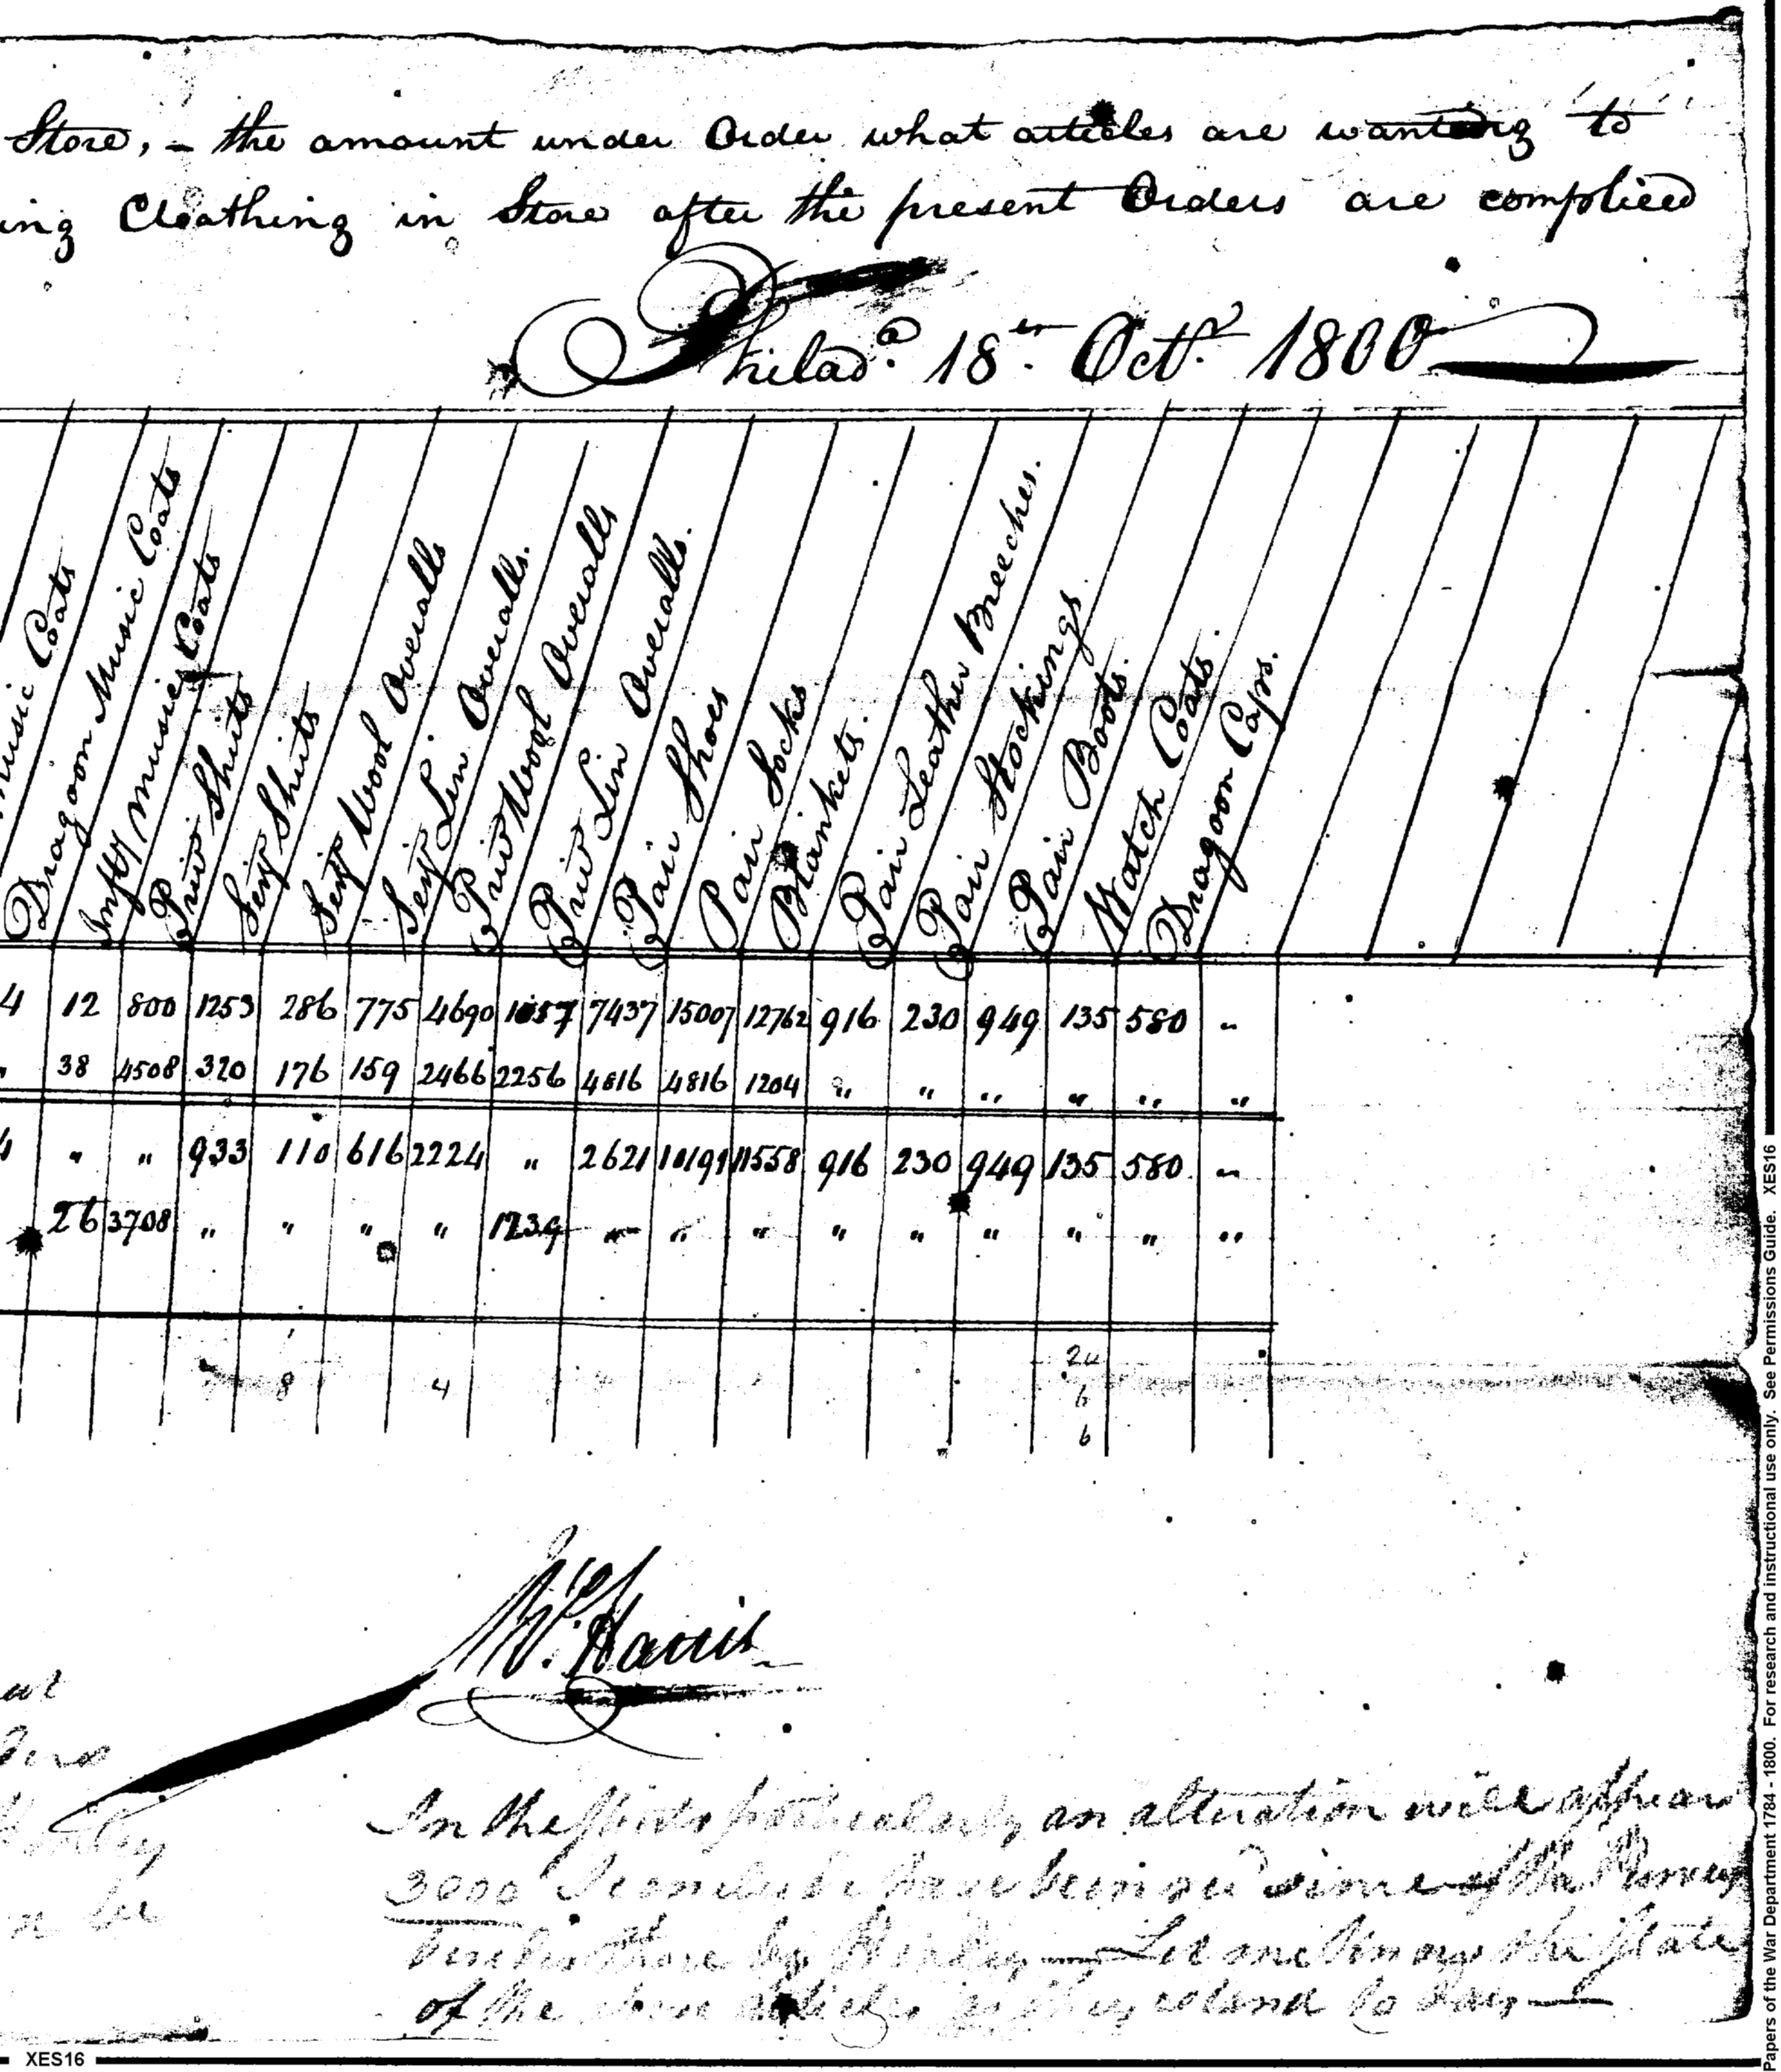 Store, - the amount under Order what articles are wanting to
ing Cloathing in Store after the present Orders are complied
Philad.a 18th Octr. 1800
Music Coats
Dragoon Music Coats
Infty Music Coats
Priv Shirts
Serjt Shirts
Serjt Wool Overalls
Serjt Lin Overalls.
Priv Wool Overalls
Priv Lin Overalls.
Pair Shoes
Pair Socks
Blankets.
Pair Leather Breeches.
Pair Stockings
Pair Boots.
Watch Coats.
Dragoon Caps.
4 12 800 1253 286 775 4690 1057 7437 15007 12762 916 230 949 135 580 "
" 38 4508 320 176 159 2466 2256 4816 4816 1204 " " " " " "
4 " " 933 110 616 2224 " 2621 10191 11558 916 230 949 135 580 "
26 3708 " " " " 1239 " " " " " " " " "
8 4 6
6
Wm. Harris
In the particularly an alteration will appear
3000 I conclude have been since of the
by Let me know the State
of the articles as they stand to day
be
XES16
Papers of the War Department 1784 - 1800. For research and instructional use only. See Permissions Guide. XES16